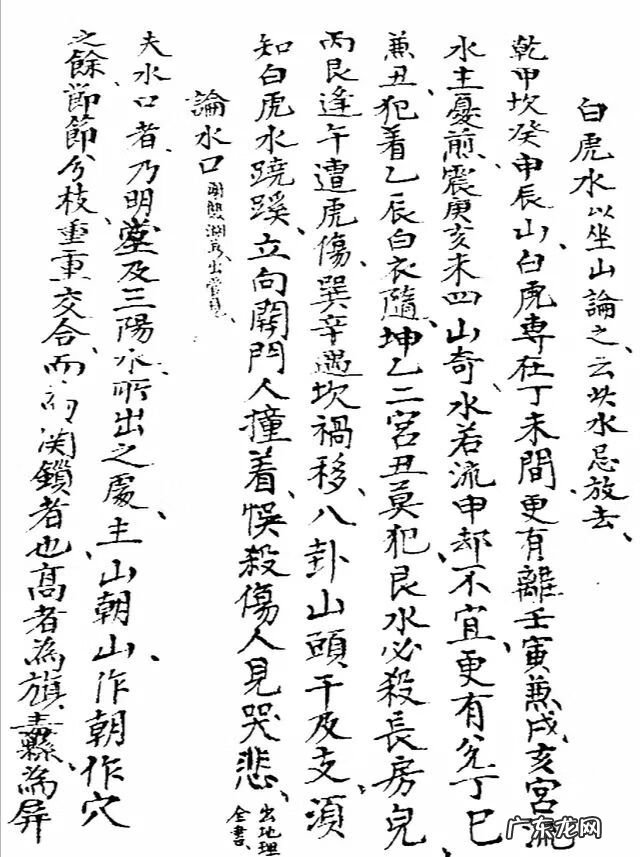 白虎水以坐山論之云此水忌放去
乾甲坎癸申辰山白虎專在丁未間更有離壬寅兼戌亥宮流
水主憂煎震庚亥未四山奇水若流申却不宜更有兌丁巳
兼丑犯着乙辰白衣隨坤乙二宮丑莫犯艮水必殺長房兒
丙艮逢午遭虎傷巽辛遇坎禍移八卦山頭干及支須
知白虎水蹺蹊立向開門人撞着悞殺傷人見哭悲 出地理全書
論水口
夫水口者乃明堂及三陽水所出之處主山朝山作朝作穴
之餘節節分枝重重交合而為関鎖者也高者為旗纛為屏
广东龙网